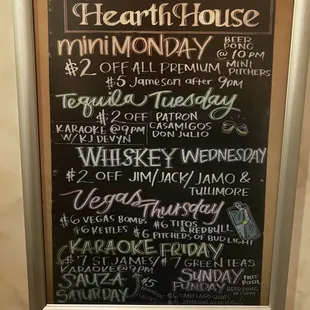 HearthHouse
miniMONDAY BEER PONG @ 10PM
$2 OFF ALL PREMIUM MINI PITCHERS
$5 Jameson after 9pm
Tequila Tuesday
$2 OFF PATRON
KARAOKE @ 9PM CASAMIGOS
W/ KJ DEVYN DON JULIO
WHISKEY WEDNESDAY
$2 OFF JIM/JACK/JAMO &
TULLIMORE
Vegas Thursday
$6 VEGAS BOMBS $6 TITOS
$6 KETLES & REDBULL
$6 PITCHERS OF BUD LIGHT
KARAOKE FRIDAY
$7 ST. JAMES/ $7 GREEN TEAS
KARAOKE @ 9PM
SAUZA $5 SUNDAY FREE POOL
SATURDAY FUNDAY BEER PONG